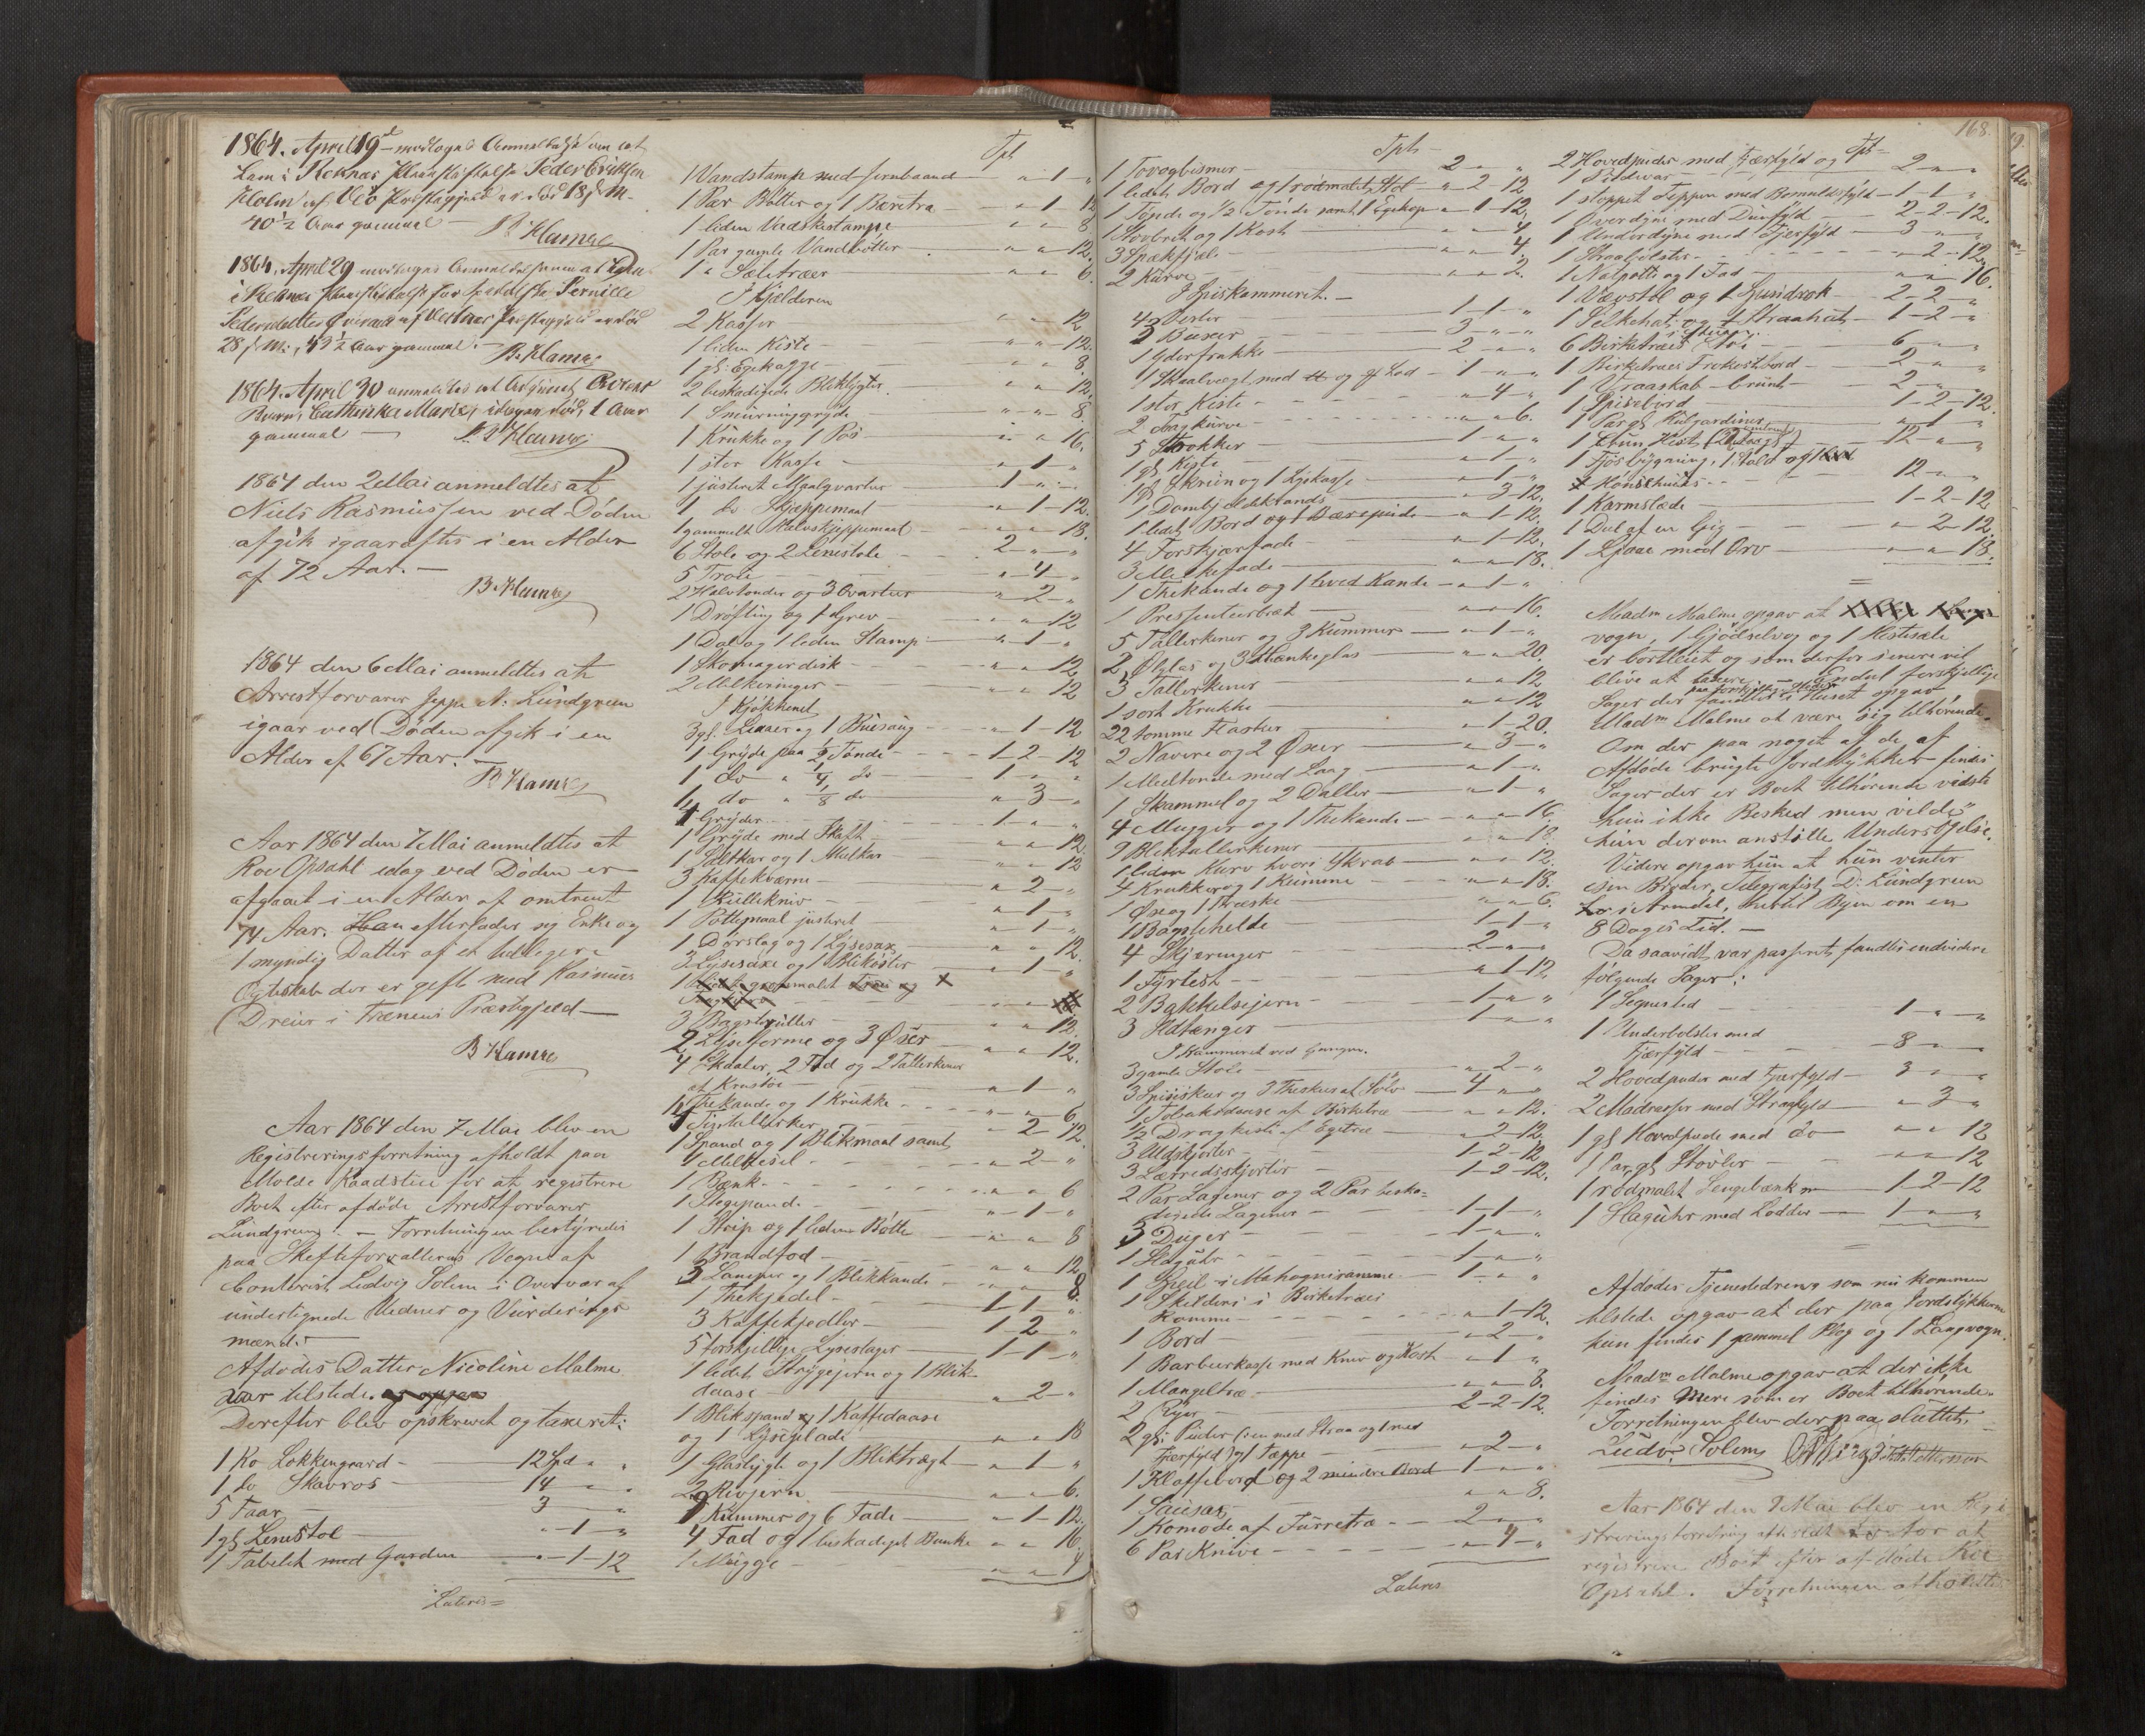 1864. April 19 modtoges Anmeldelse om at
Lem i Reknæs Pleiestiftelse Peder Eriksen
Holm af Veø Præstegjeld er død 18 d. M.
40 1/2 Aar gammel
B. Hamre
1864. April 29 modtoges Anmeldelse om at Lem
i Reknæs Pleiestiftelse for Spedalske Pernille
Pedersdatter af Præstegjeld er død
28 d. M., 43 1/2 Aar gammel.
B. Hamre
1864. April 30 anmeldtes at
Barn, Cathinka Marie, idag er død, 1 Aar
gammel
B. Hamre
1864 den 2 Mai anmeldtes at
Niels Rasmussen ved Døden
afgik igaaraftes i en Alder
af 72 Aar. —
B. Hamre
1864 den 6 Mai anmeldtes at
Arrestforvarer Jeppe N. Lundgreen
igaar ved Døden afgik i en
Alder af 67 Aar. —
B Hamre
Aar 1864 den 7 Mai anmeldtes at
Roe Opsahl idag ved Døden er
afgaaet i en Alder af omtrent
74 Aar. Han efterlader sig Enke og
1 myndig Datter af et tidligere
Ægteskab der er gift med Rasmus
Dreier i Trænens Præstegjeld —
B Hamre
Aar 1864 den 7 Mai blev en
Registreringsforretning afholdt paa
Molde Raadstue for at registrere
Boet efter afdøde Arrestforvarer
Lundgreen. — Forretningen bestyredes
paa Skifteforvalterens Vegne af
Contorist Ludvig Solem i Overvær af
undertegnede Vidner og Vurderings
mænd: —
Afdødes Datter Nicoline Malme
var tilstede.
Derefter blev opskrevet og taxeret:
1 Ko Løkkengaard — 12 Spd " "
1 do Skavros — 14 — " "
5 Faar — 3 — "
1 gl Lenestol " — 1 — "
1 Tabelet med Garden " — 1 — 12
Lateris =
Spd
1 Vandstamp med Jernbaand — " — 1 — "
1 Par Bøtter og 1 Bæretræ — " — 1 — 12
1 liden Vadskestampe — " — " — 8
1 Par gamle Vandbøtter — " — " — 12.
1 " Sæletræer — " — " — 6.
I Kjelderen
2 Kasser — " — " — 12
1 liden Kiste — " — " — 12.
1 gl: Egekagge — " — " — 8.
2 beskadigede Bliklygter — " — " — 12.
1 Smurningsgryde — " — " — 8.
1 Krukke og 1 Pøs — " — " — 16.
1 stor Kasse — " — 1 — "
1 justeret Maalqvarter — 1 — " — "
1 do Skjæppemaal — " — 1 — 12.
1 gammelt Halvskjeppemaal — " — " — 18.
6 Stole og 2 Lenestole — 2 — " — "
5 Trøie — " — 4 — "
2 Halvtønder og 3 Qvarteer — " — 2 — "
1 Drøfting og 1 Grev — " — " — 12
1 Dal og 1 liden Stamp — " — 1 — "
1 Skomagerdisk — " — " — 12
2 Melkeringer — " — " — 12
I Kjøkkenet
3 gl. og 1 — " — 1 — 12
1 Gryde paa 1/2 Tønde — 1 — 2 — 12
1 do " 1/4 do — 1 — " — "
1 do " 1/8 do — " — 3 — "
4 Gryder — 1 — " — "
1 Gryde med Skaft — " — " — 12.
1 Saltkar og 1 Melkar — " — " — 12
3 Kaffekværne — " — 2 — "
1 Rullekniv — " — 1 — "
1 Pottemaal justeret — " — 1 — "
1 Dørslag og 1 Lysesax — " — " — 12.
3 Lysesaxe og 1 Blikøster — " — 1 — "
3 — " — " — 12.
2 Lyseforme og 3 Øser — " — " — 12.
4 Skaaler, 2 Fad og 2 Tallerkener
af Krustøi — " — 1 — "
1 Thekande og 1 Krukke — " — " — 6
Tintallerker — " — 2 — 12.
1 Spand og 1 Blikmaal samt
1 Melkesil — " — 2 — "
1 Bænk — " — " — 6
1 Stegepande — " — 1 — "
1 Sleip og 1 liden Bøtte — " — " — 8
1 Brandfod — " — " — 12
3 Lamper og 1 Blikkande — " — " — 8.
1 Thekjedel — 1 — 1 — "
3 Kaffekjedler — 1 — 2 — "
5 forskjellige Lysestager — 1 — 1 — "
1 lidet Strygejern og 1 Blik-
daase — " — 2 — "
1 Blikspand og 1 Kaffedaase
og 1 Lyseplade — " — " — 18
1 Glaslygte og 1 Bliktragt — " — 1 — "
2 Rivjern — " — " — 6.
9 Kummer og 6 Fade — " — 1 — 12.
4 Fad og 1 beskadiget Bunke — " — " — 16
1 Mugge — " — " — 4
Spd —
1 Tovogbismer — 2 — " "
1 lidet Bord og 1 rødmalet Stol — " — 2 — 12
1 Tønde og 1/2 Tønde samt 1 Egekop — " — 1 — 12.
1 Støvbret og 1 Kost — " — " — 4
3 Spækfjæle — " — " — 4.
2 Kurve — " — " — 2.
I Spiskammeret. —
4 Vester — 1 — 1 — "
5 Buxer — 3 — " — "
1 Yderfrakke — 2 — " — "
1 Skaalvægt med og Lod — 1 — " — "
1 stor Kiste — " — 4 — "
2 Tragkurve — " — " — 6.
5 Strokker — 1 — " — "
1 gl. Kiste — " — 1 — "
1 gl. Skrin og 1 Lysekasse — " — 1 — "
1 — " — 3 — 12.
1 lidet Bord og 1 — " — 1 — 12.
4 Forskjærfade — " — 1 — 12.
3 Melkefade — " — " — 18.
1 Thekande og 1 hvid Kande — " — 1 — "
1 Pressenteerbræt — " — " — 16.
5 Tallerkener og 3 Kummer — " — 1 — "
2 Ølglas og 3 Hankeglas — " — " — 20.
3 Tallerkener — " — " — 12
1 sort Krukke — " — " — 12
22 tomme Flasker — " — 1 — 20.
2 Navere og 2 Øxer — " — 3 — "
1 Meeltønde med Laag — " — 1 — "
1 Skammel og 2 Daller — " — 1 — "
4 Mugger og 1 Thekande — " — " — 16.
9 Bliktallerkener — " — " — 18
1 liden Kurv hvori Skrab — " — " — 12.
4 Krukker og 1 Kumme — " — " — 18.
1 Øse og 1 Træske — " — " — 6.
1 Bagstehelde — 1 — 1 — "
4 Skjæringer — 2 — " — "
1 Fyrtest — " — 1 — 12
2 Bakkelsejern — 1 — " — "
3 Ildtænger — 1 — " — "
I Kammeret ved Gangen.
3 gamle Stole — " — 2 — "
3 Spiseskeer og 3 Theskeer af Sølv — 4 — " — "
1 Tobaksdaase af Birketræ — " — " — 12.
1/2 Dragkiste af Egetræ — " — 2 — 12.
3 Uldskjorter — 1 — 2 — 12
3 Lærredsskjorter — 1 — 2 — 12.
2 Par Lagener og 2 Par beska=
digede Lagener — 1 — 1 — "
5 Duger — 1 — " — "
1 Uhr — 1 — " — "
1 Speil i Mahogniramme — 1 — " — "
1 Skilderi i Birketræes
Ramme — " — 1 — 12.
1 Bord — " — 2 — "
1 Barbeerkasse med Kniv og Kost — " — 1 — "
1 Mangeltræ — " — " — 8.
2 Ryer — 2 — 2 — 12.
2 gl: Puder (een med Straa og 1 med
Fjærfyld) og 1 Tæppe — " — 2 — "
1 Klaffebord og 2 mindre Bord — 1 — " — "
1 Sausax — " — " — 8.
1 Komode af Furretræ — 2 — " — "
6 Par Knive — " — 4 — "
Lateris
168.
Spd =
2 Hovedpuder med Fjærfyld og
1 Pudevar — 2 — " — "
1 stoppet Teppe med Bomuldsfyld — 1 — 1 — "
1 Overdyne med Duunfyld — 2 — 2 — 12.
1 Underdyne med Fjerfyld — 3 — " — "
1 Straabolster — " — 2 — 12.
1 Natpotte og 1 Fad — " — " — 16.
1 Vævstol og 1 Spindrok — 2 — 2 — "
1 Silkehat og 1 Straahat — 1 — 2 — "
i Stuen.
6 Birketræes Stole — 6 — " — "
1 Birketræes Frokostbord — 2 — " — "
1 Vraaskab bruunt — 2 — " — "
1 Spisebord — 1 — 2 — 12.
1 Par gl. Rulgardiner — " — 1 — "
1 bruun Hest — 12 — " — "
1 Fjøsbygning, 1 Stald og
Hønsehuus — 12 — " — "
1 Karmslæde — 1 — 2 — 12
1 Deel af en Gig — " — 2 — 12.
1 Ljaae med Orv — " — " — 18.
=
Madm Malme opgav at
vogn, 1 Gjødselvog og 1 Hestesæle
er bortleiet og som derfor senere vil
blive at taxere. Endeel forskjellige
Sager der fandtes i Huset opgav
Madm Malme at være sig tilhørende.
Om der paa noget af de af
Afdøde brugte Jordstykker findes
Sager der er Boet tilhørende vidste
hun ikke Besked men vilde
hun derom anstille Undersøgelse.
Videre opgav hun at hun venter
sin Broder, Telegrafist D. Lundgreen
i Arendal, hertil Byen om en
8 Dages Tid. —
Da saavidt var passeret fandtes endvidere
følgende Sager:
1 Sengested — 1 — " — "
1 Underbolster med
Fjærfyld — 8 — " — "
2 Hovedpuder med Fjærfyld — 3 — " — "
2 Madrasser med Straafyld — " — 3 — "
1 gl Hovedpude med do — " — " — 12
1 Par gl Støvler — " — " — 12
1 rødmalet Sengebænk — 1 — 2 — 12
1 Slaguhr med Lodder — 1 — " — "
=
Afdødes Tjenestedreng som nu kommen
tilstede opgav at der paa Jordstykkerne
kun findes 1 gammel Plog og 1 Langvogn.
Madm Malme opgav at der ikke
findes mere som er Boet tilhørende.
Forretningen blev derpaa sluttet. —
Ludv. Solem Pettersen
Aar 1864 den 9 Mai blev en Regi
streringsforretning afholdt for at
registrere Boet efter afdøde Roe
Opsahl. Forretningen afholdtes